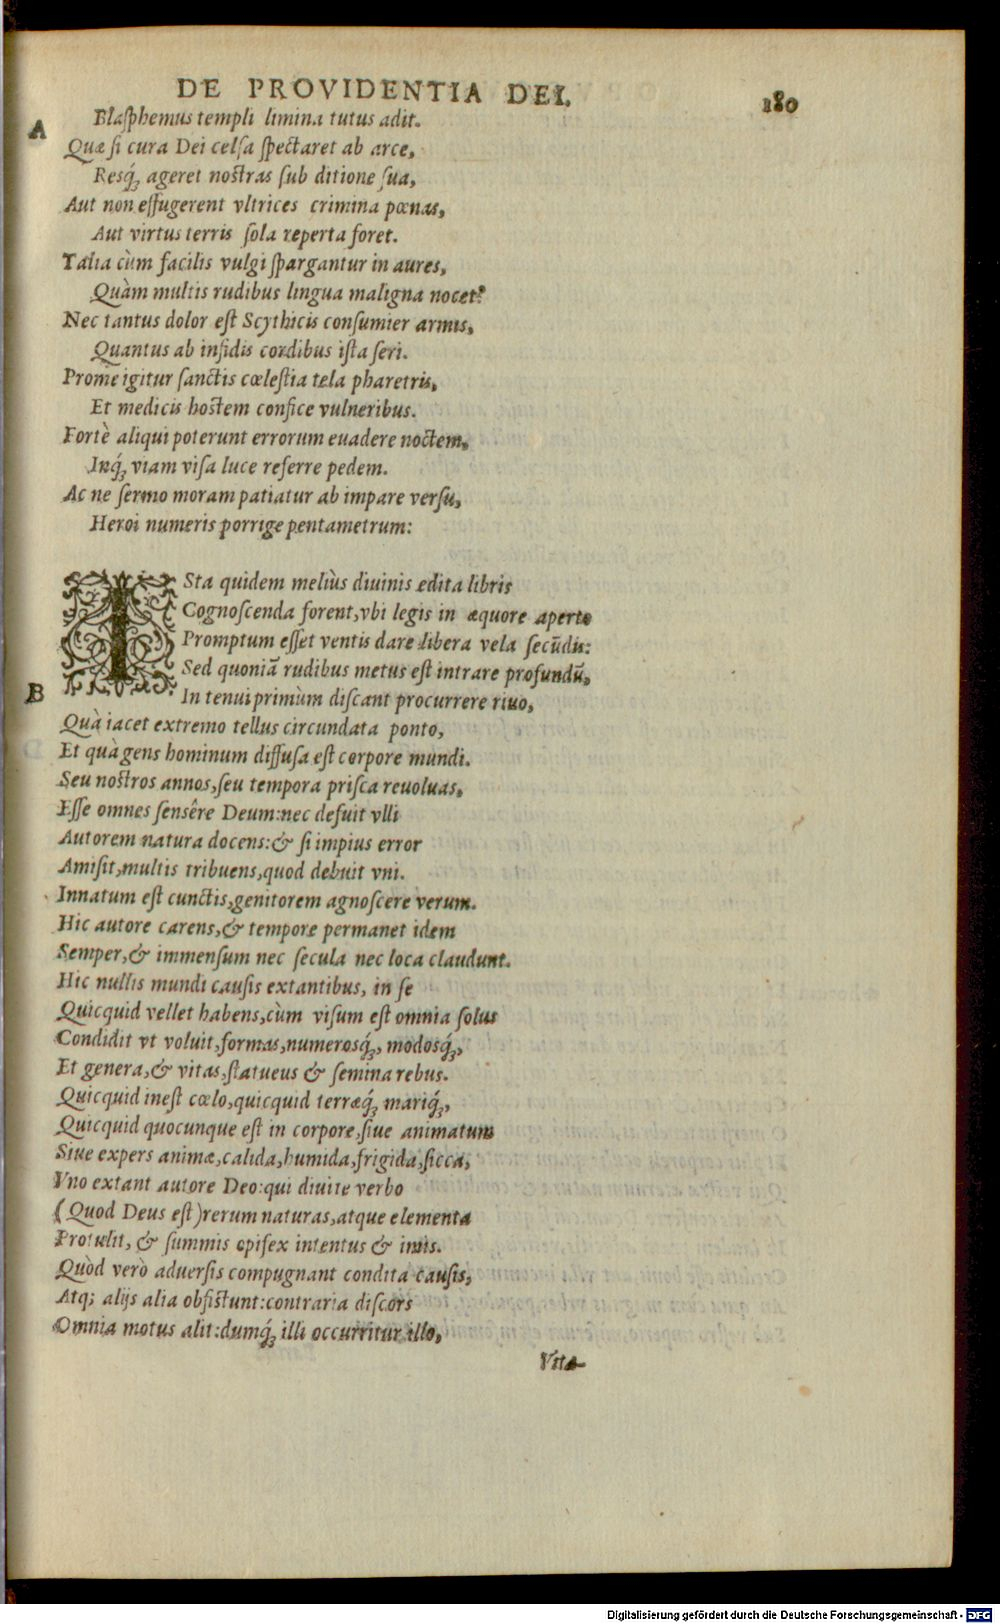 DE PROVIDENTIA DEI.
180
A
Blaſphemus templi limina tutus adit.
Quæ ſi cura Dei celſa ſpectaret ab arce,
Resq́ꝫ ageret noſtras ſub ditione ſua,
Aut non effugerent vltrices crimina pœnas,
Aut virtus terris ſola reperta foret.
Talia cùm facilis vulgi ſpargantur in aures,
Quàm multis rudibus lingua maligna nocet?
Nec tantus dolor eſt Scythicis conſumier armis,
Quantus ab infidis cordibus iſta ſeri.
Prome igitur ſanctis cœleſtia tela pharetris,
Et medicis hoſtem confice vulneribus.
Fortè aliqui poterunt errorum euadere noctem,
Inq́ꝫ viam viſa luce referre pedem.
Ac ne ſermo moram patiatur ab impare verſu,
Heroi numeris porrige pentametrum:
ISta quidem meliùs diuinis edita libris
Cognoſcenda forent, vbi legis in æquore aperto
Promptum eſſet ventis dare libera vela ſecūdis:
Sed quoniā rudibus metus eſt intrare profundū,
B
In tenui primùm diſcant procurrere riuo,
Quà iacet extremo tellus circundata ponto,
Et quà gens hominum diffuſa eſt corpore mundi.
Seu noſtros annos, ſeu tempora priſca reuoluas,
Eſſe omnes ſensêre Deum: nec defuit vlli
Autorem natura docens: & ſi impius error
Amiſit, multis tribuens, quod debuit vni.
Innatum eſt cunctis, genitorem agnoſcere verum.
Hic autore carens, & tempore permanet idem
Semper, & immenſum nec ſecula nec loca claudunt.
Hic nullis mundi cauſis extantibus, in ſe
Quicquid vellet habens, cùm viſum eſt omnia ſolus
Condidit vt voluit, formas, numerosq́ꝫ, modosq́ꝫ,
Et genera, & vitas, ſtatueus & ſemina rebus.
Quicquid ineſt cœlo, quicquid terræq́ꝫ mariq́ꝫ,
Quicquid quocunque eſt in corpore, ſiue animatum
Siue expers animæ, calida, humida, frigida, ſicca,
Vno extant autore Deo: qui diuite verbo
(Quod Deus eſt) rerum naturas, atque elementa
Protulit, & ſummis opifex intentus & imis.
Quòd verò aduerſis compugnant condita cauſis,
Atq; alijs alia obſiſtunt: contraria diſcors
Omnia motus alit: dumq́ꝫ illi occurritur illo,
Vita
Digitalisierung gefördert durch die Deutsche Forschungsgemeinschaft - DFG